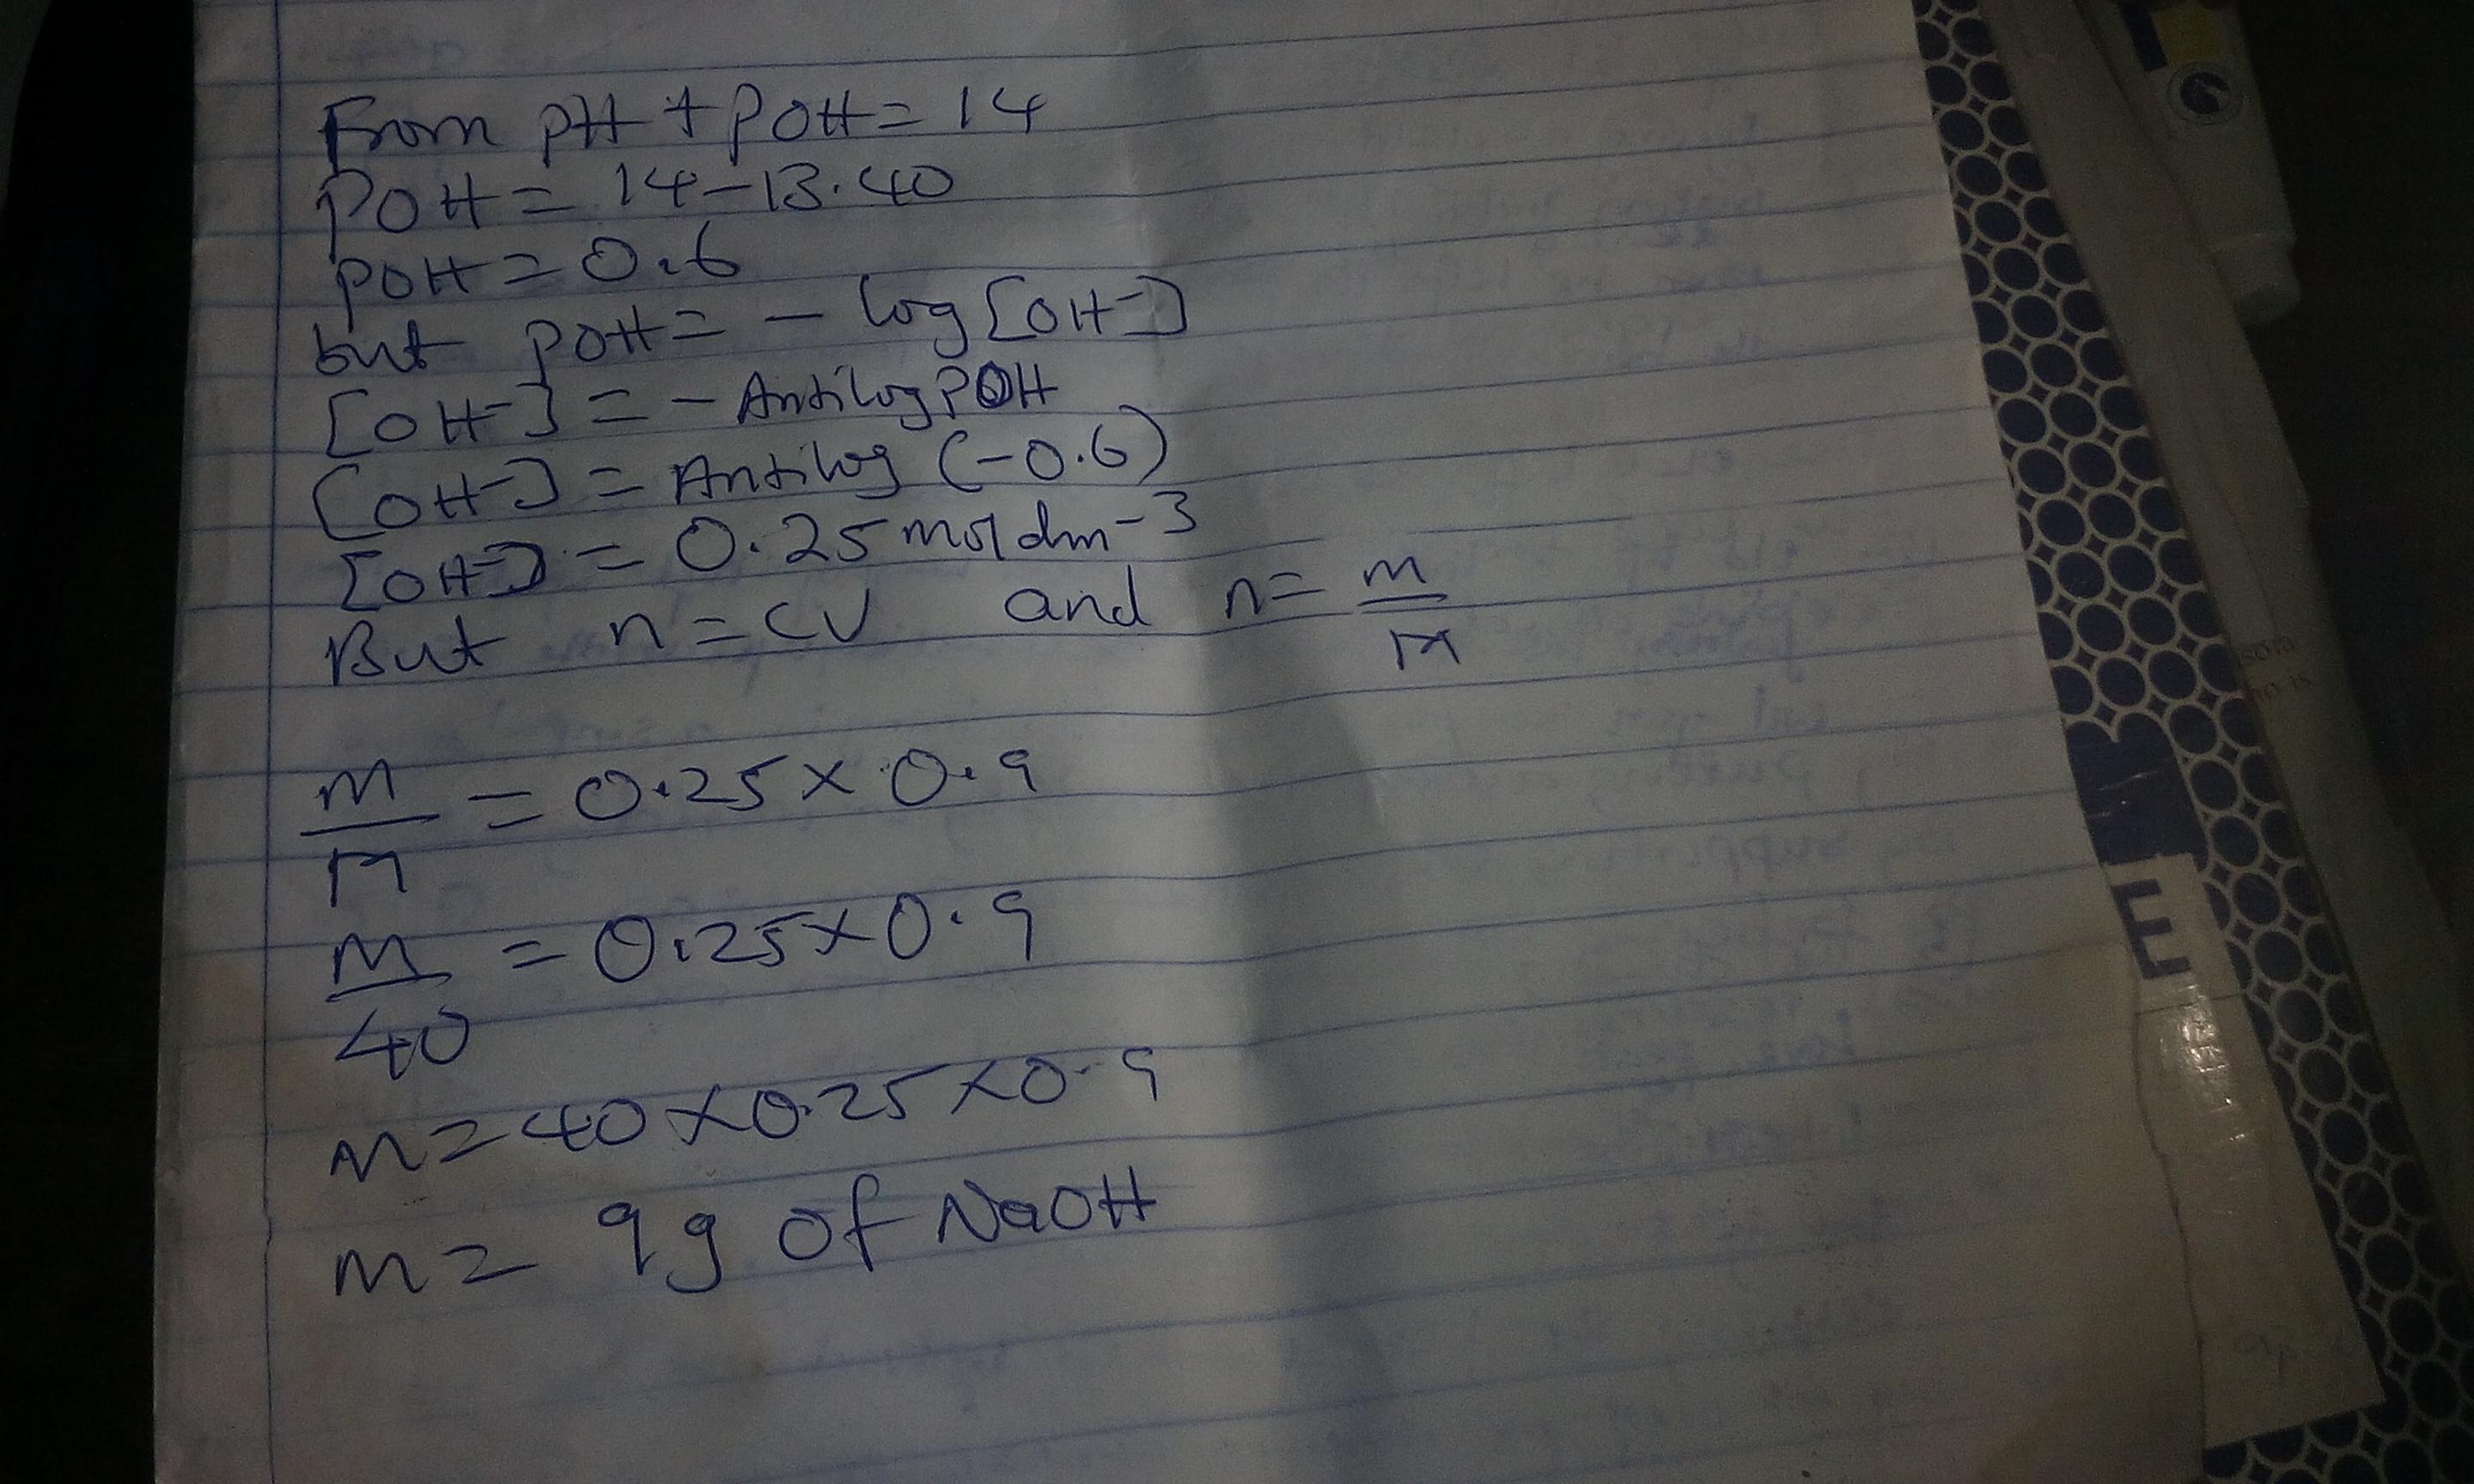 From pH + pOH = 14
POH = 14-13.40
POH = 0.6
but pOH = - log [OH-]
[OH-] = - Antilog POH
[OH-] = Antilog (-0.6)
[OH-] = 0.25 moldm-3
But n = CV and n = m/M
m/M = 0.25 x 0.9
m/40 = 0.25 x 0.9
m = 40 x 0.25 x 0.9
m = 9g of NaOH
E